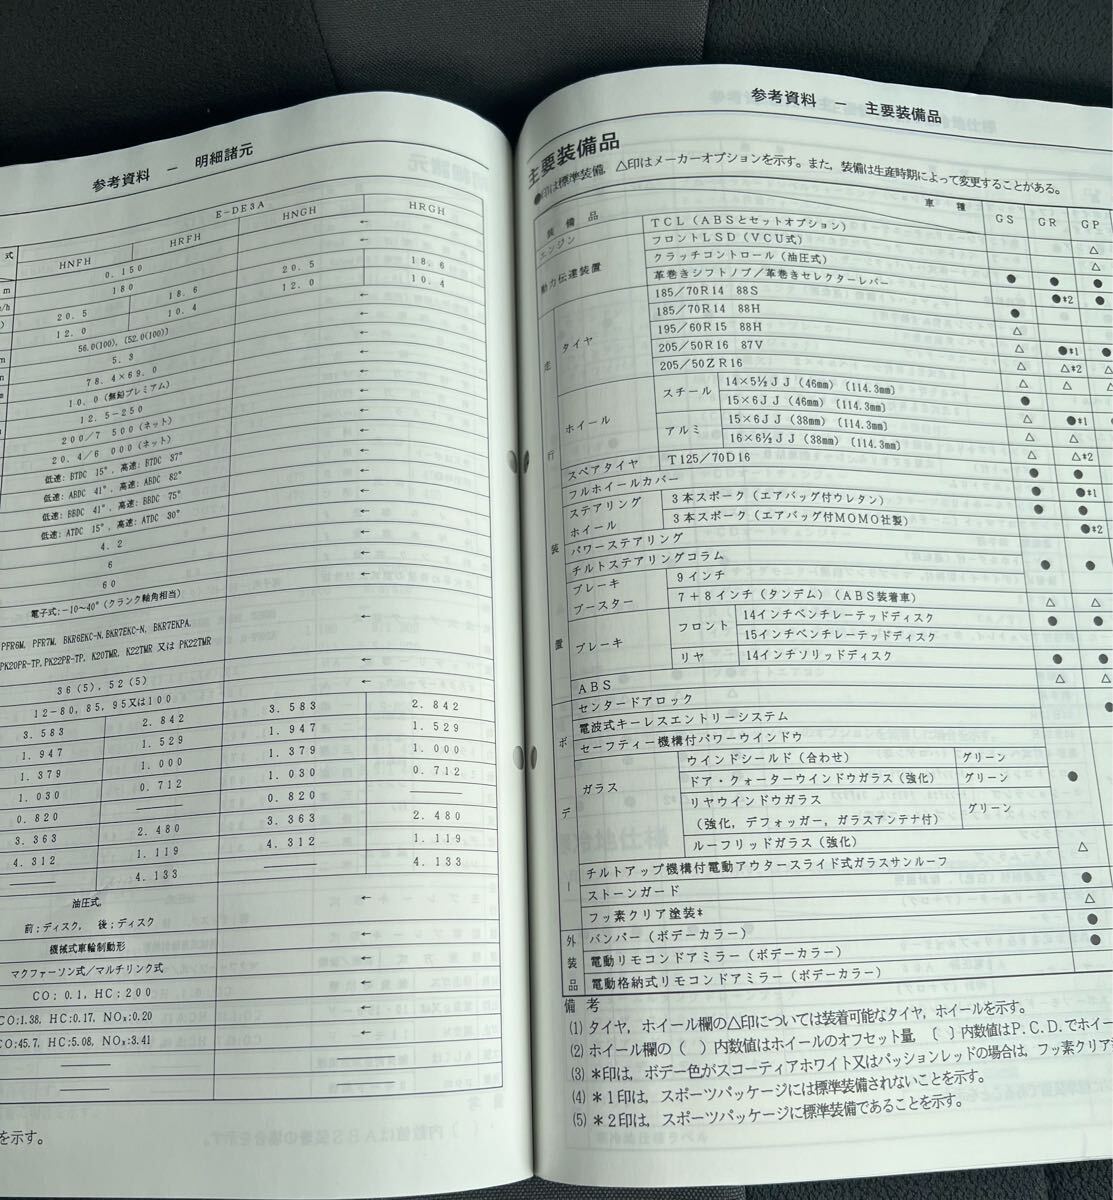 参考資料 － 明細諸元
E-DE3A
HNFH HRFH HNGH ← HRGH
0.150
180 20.5 18.6
20.5 18.6 12.0 10.4
12.0 10.4 ←
56.0(100), (52.0(100))
5.3 ←
78.4×69.0 ←
10.0(無鉛プレミアム) ←
12.5-250 ←
200/7 500(ネット) ←
20.4/6 000(ネット) ←
低速:BTDC 15°, 高速:BTDC 37° ←
低速:ABDC 41°, 高速:ABDC 82°
低速:BBDC 41°, 高速:BBDC 75° ←
低速:ATDC 15°, 高速:ATDC 30°
4.2 ←
6 ←
60 ←
電子式:-10～40°(クランク軸角相当) ←
PFR6M, PFR7M, BKR6EKC-N, BKR7EKC-N, BKR7EKPA,
PK20PR-TP, PK22PR-TP, K20TMR, K22TMR 又は PK22TMR ←
36(5), 52(5) ←
12-80, 85, 95又は100 ←
3.583 2.842 3.583 2.842
1.947 1.529 1.947 1.529
1.379 1.000 1.379 1.000
1.030 0.712 1.030 0.712
0.820 ── 0.820 ──
3.363 2.480 3.363 2.480
4.312 1.119 4.312 1.119
── 4.133 ── 4.133
油圧式, ←
前；ディスク, 後；ディスク
機械式車輪制動形 ←
マクファーソン式／マルチリンク式 ←
CO；0.1, HC；200 ←
CO;1.38, HC:0.17, NOx:0.20 ←
CO;45.7, HC:5.08, NOx:3.41 ←
を示す。
参考資料 － 主要装備品
主要装備品
●印は標準装備, △印はメーカーオプションを示す。また, 装備は生産時期によって変更することがある。
装備品 車種 GS GR GP
エンジン TCL(ABSとセットオプション) △
動力伝達装置 フロントLSD(VCU式) △
クラッチコントロール(油圧式) ● ● ●
革巻きシフトノブ／革巻きセレクターレバー ●*2 ●
走行装置 タイヤ 185／70R14 88S ●
185／70R14 88H △
195／60R15 88H △ ●*1 ●
205／50R16 87V △ △*2 △
205／50ZR16 △ △ △
ホイール スチール 14×5½JJ(46mm)〔114.3mm〕 ●
15×6JJ(46mm)〔114.3mm〕 △ ●*1
アルミ 15×6JJ(38mm)〔114.3mm〕 △ △
16×6½JJ(38mm)〔114.3mm〕 △ △*2
スペアタイヤ T125／70D16 ● ●
フルホイールカバー ● ●*1
ステアリングホイール 3本スポーク(エアバッグ付ウレタン) ● ●
3本スポーク(エアバッグ付MOMO社製) ●*2
パワーステアリング
チルトステアリングコラム ● ●
ブレーキブースター 9インチ
7＋8インチ(タンデム)(ABS装着車) △ △
ブレーキ フロント 14インチベンチレーテッドディスク ● ●
15インチベンチレーテッドディスク
リヤ 14インチソリッドディスク ● ●
ABS △ △
ボデー センタードアロック
電波式キーレスエントリーシステム
セーフティー機構付パワーウインドウ
ガラス ウインドシールド(合わせ) グリーン
ドア・クォーターウインドウガラス(強化) グリーン ●
リヤウインドウガラス
(強化, デフォッガー, ガラスアンテナ付) グリーン
ルーフリッドガラス(強化)
チルトアップ機構付電動アウタースライド式ガラスサンルーフ △
ストーンガード ●
フッ素クリア塗装* △
外装品 バンパー(ボデーカラー) ●
電動リモコンドアミラー(ボデーカラー) ●
電動格納式リモコンドアミラー(ボデーカラー)
備考
(1) タイヤ, ホイール欄の△印については装着可能なタイヤ, ホイールを示す。
(2) ホイール欄の( )内数値はホイールのオフセット量,〔 〕内数値はP.C.D.でホイー
(3) *印は, ボデー色がスコーティアホワイト又はパッションレッドの場合は, フッ素クリア
(4) *1印は, スポーツパッケージには標準装備されないことを示す。
(5) *2印は, スポーツパッケージに標準装備であることを示す。